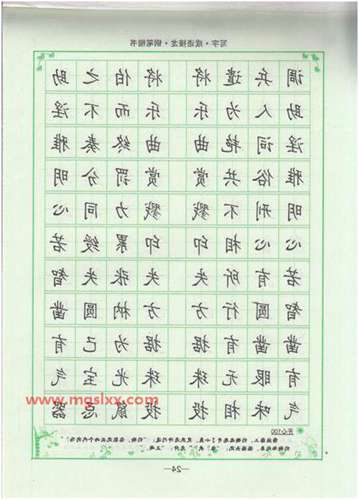 写字·成语接龙·钢笔楷书
调兵遣将 将伯之助
助人为乐 乐而不淫
淫词艳曲 曲终奏雅
雅俗共赏 赏罚分明
明刑不戮 戮力同心
心心相印 印累绶若
若有所失 失张失智
智圆行方 方枘圆凿
凿凿有据 据为己有
有眼无珠 珠光宝气
www.mgslxx.com
气味相投 投鼠忌器
开心100
—24—